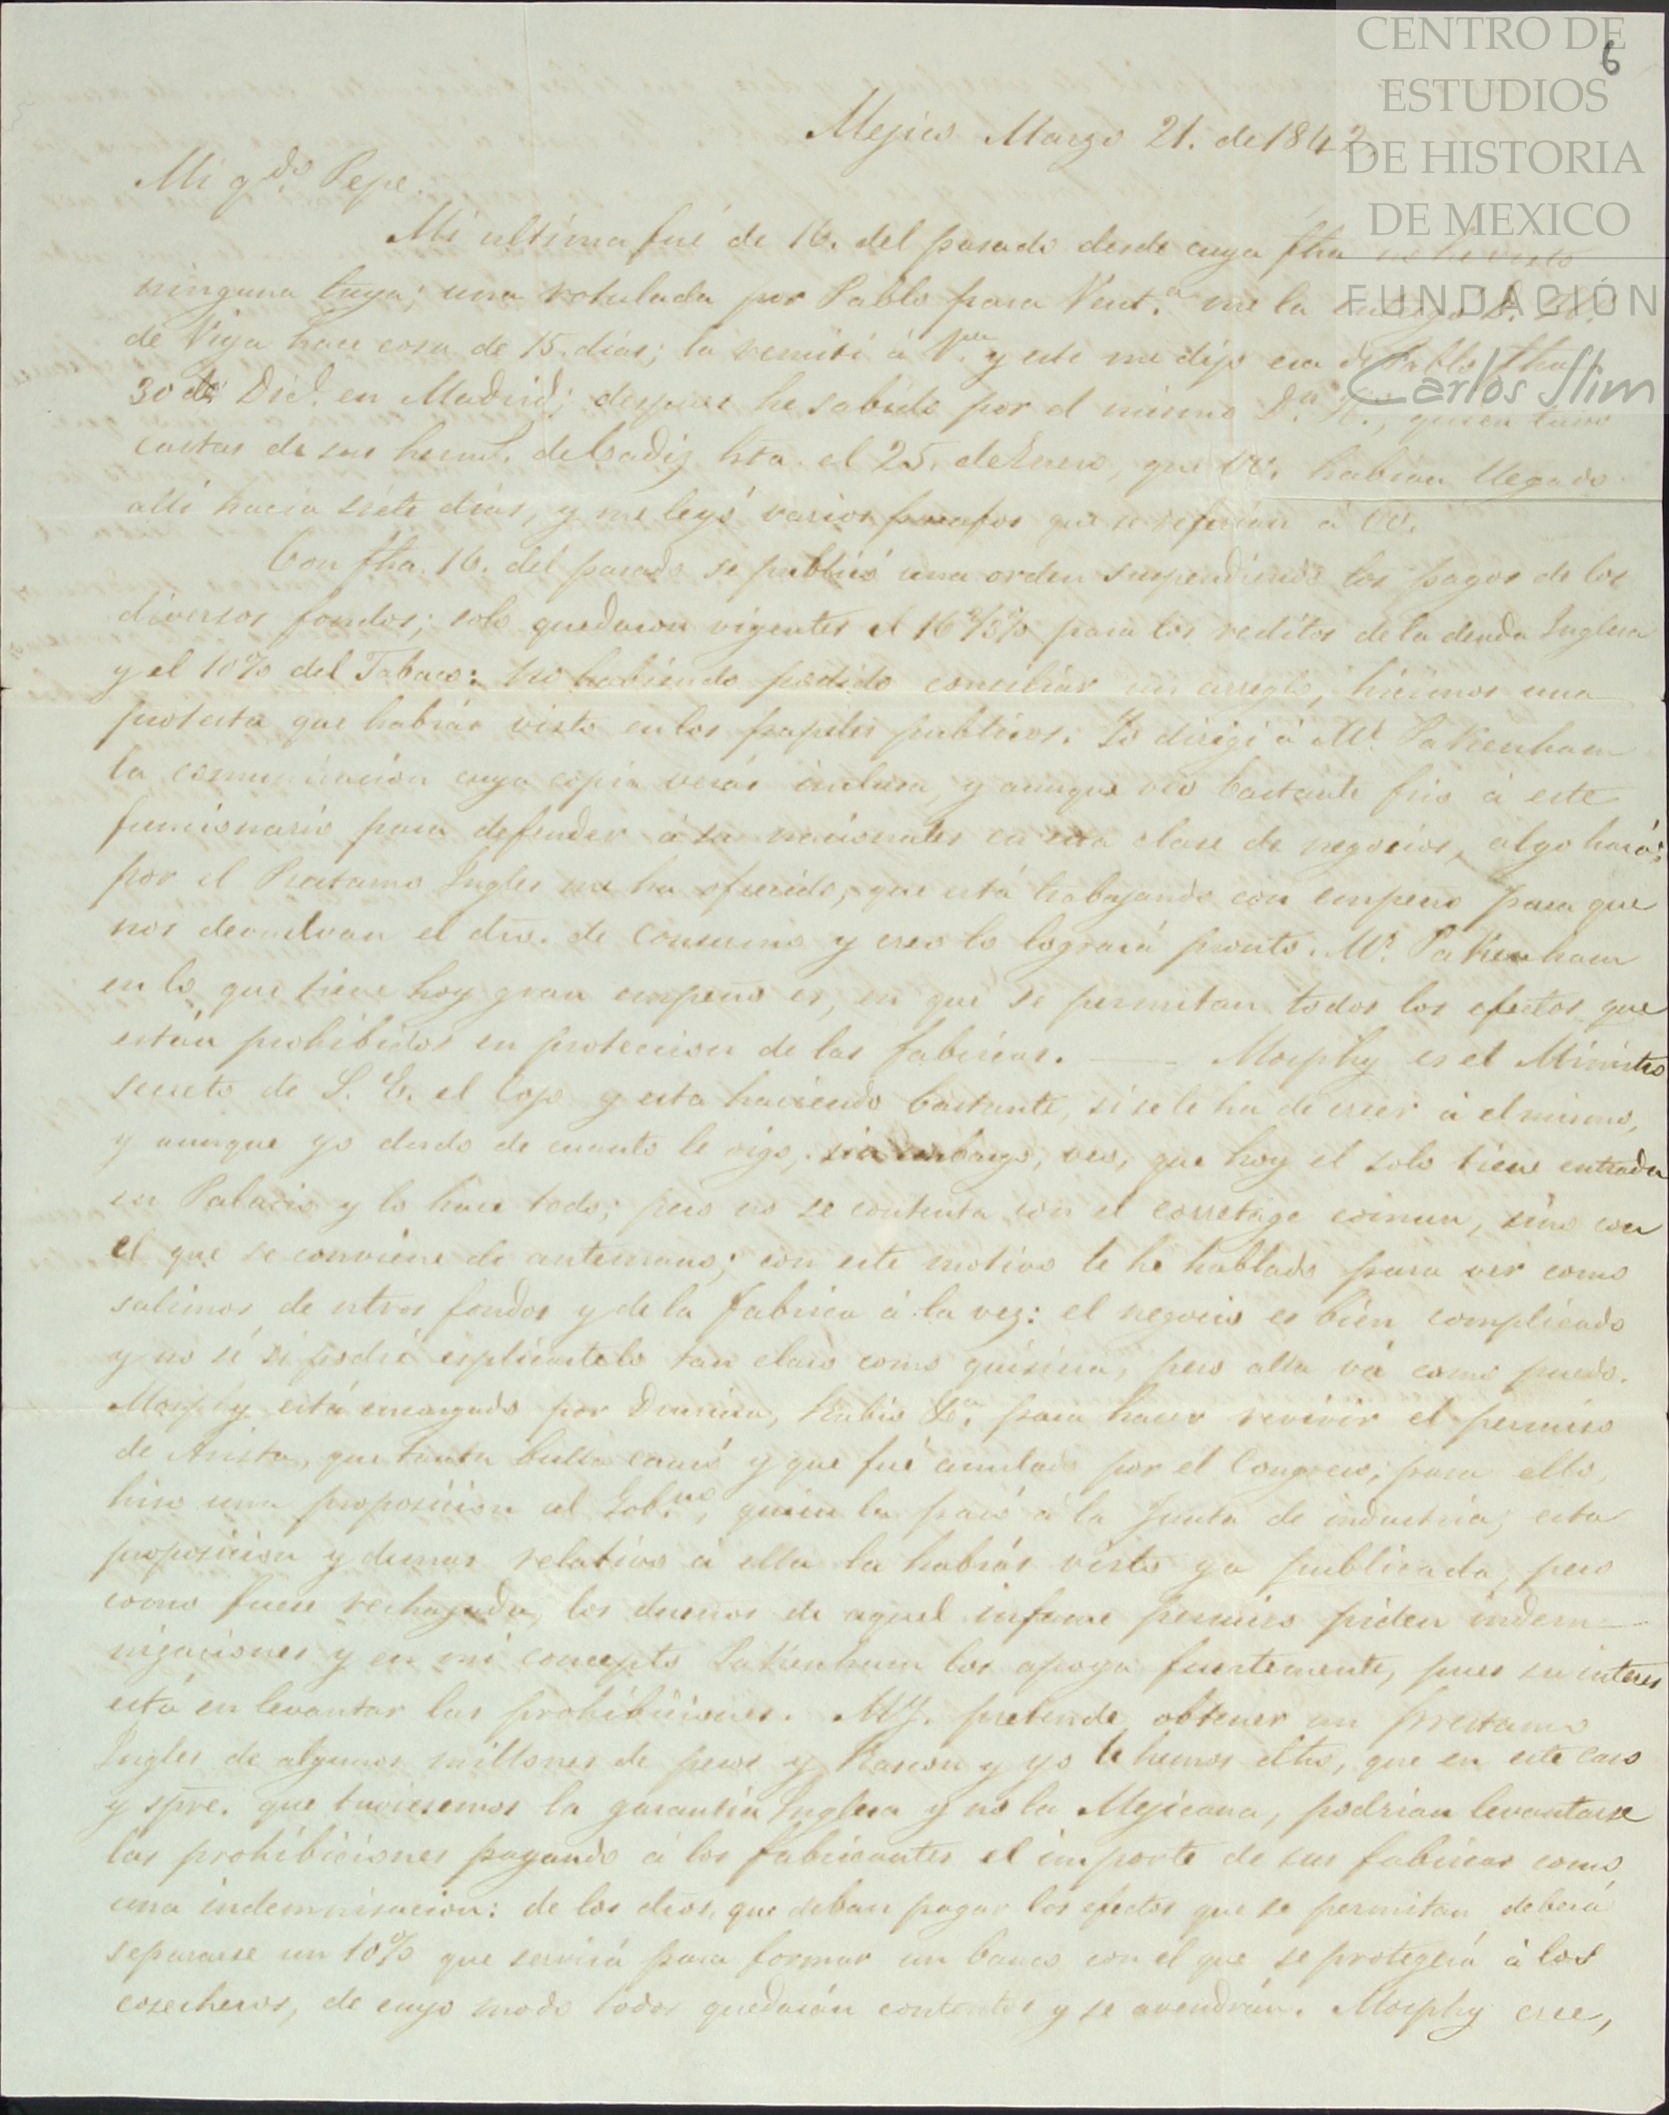 CENTRO DE
ESTUDIOS
DE HISTORIA
DE MEXICO
FUNDACIÓN
Carlos Slim
6
Mejico Marzo 21. de 1842.
Mi qdo. Pepe.
Mi ultima fué de 16. del pasado desde cuya fha no he visto
ninguna tuya; una rotulada por Pablo para Vent.a me la entregó
de Viya hace cosa de 15. dias; la remití á V. y este me dijo era de Pablo fha
30 de Dic.e en Madrid; despues he sabido por el mismo D.n , quien tuvo
cartas de sus herm.s de Cadiz hta. el 25. de Enero, que VV. habian llegado
allí hacía siete dias, y me leyó varios parrafos que se referian á VV.
Con fha. 16. del pasado se publicó una orden suspendiendo los pagos de los
diversos fondos; solo quedaron vigentes el 16 2/3 % para los reditos de la deuda Inglesa
y el 10% del Tabaco: no habiendo podido conciliar un arreglo, hicimos una
protesta que habrás visto en los papeles publicos. Yo dirigí á Mr. Pakenham
la comunicacion cuya copia verás inclusa, y aunque veo bastante frio á este
funcionario para defender á sus nacionales en esta clase de negocios, algo hará;
por el Prestamo Ingles me ha ofrecido, que está trabajando con empeño para que
nos devuelvan el dro. de consumo y creo lo logrará pronto. Mr. Pakenham
en lo que tiene hoy gran empeño es, en que se permitan todos los efectos que
están prohibidos en proteccion de las fabricas. —— Morphy es el Ministro
secreto de S. E. el Cojo y esta haciendo bastante, si se le ha de creer á el mismo,
y aunque yo dudo de cuanto le oigo, sin embargo, veo, que hoy el solo tiene entrada
en Palacio y lo hace todo; pero no se contenta con el corretage comun, sino con
el que se conviene de antemano; con este motivo le he hablado para ver como
salimos de ntros fondos y de la fabrica á la vez: el negocio es bién complicado
y no sé si podré esplicartelo tan claro como quisiera, pero alla vá como puedo.
Morphy está encargado por Drusina, Rubio &.a para hacer revivir el permiso
de Arista, que tanta bulla causó y que fué anulado por el Congreso; para ello,
hiso una proposicion al Gob.no, quien la pasó á la Junta de industria; esta
proposicion y demas relativo á ella la habrás visto ya publicada, pero
como fuese rechazada, los dueños de aquel infame permiso piden indem-
nizaciones y en mi concepto Pakenham los apoya fuertemente, pues su interes
está en levantar las prohibiciones. My. pretende obtener un prestamo
Ingles de algunos millones de pesos y Rascon y yo le hemos dho, que en este caso
y spre. que tuviesemos la garantía Inglesa y no la Mejicana, podrian levantarse
las prohibiciones pagando á los fabricantes el importe de sus fabricas como
una indemnisacion: de los dros. que deban pagar los efectos que se permitan deberá
separarse un 10% que servirá para formar un banco con el que se protegerá á los
cosecheros, de cuyo modo todos quedarán contentos y se avendrán. Morphy cree,